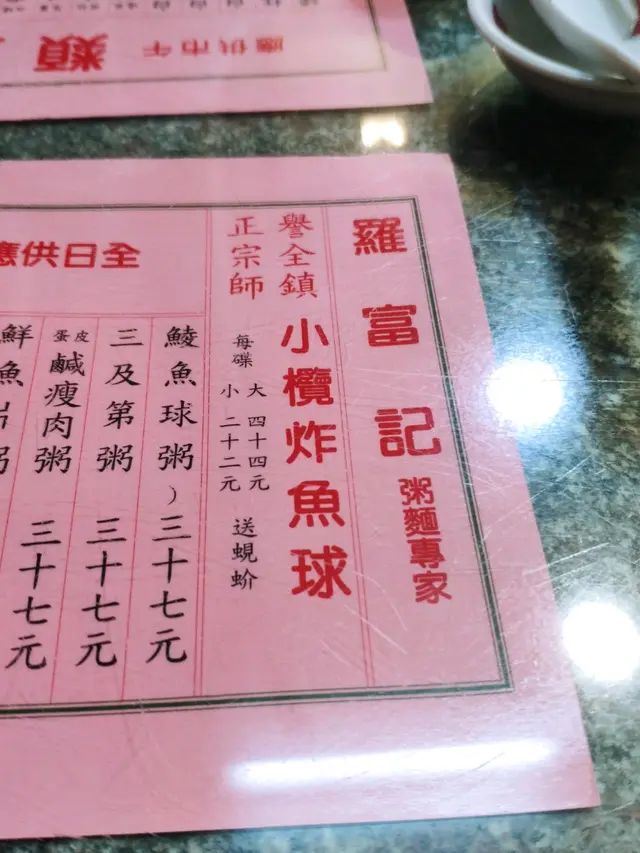 類
應供市午
羅富記
粥麵專家
譽全鎮
正宗師
小欖炸魚球
每碟
大 四十四元
小 二十二元
送蜆蚧
全日供應
鯪魚球粥）三十七元
三及第粥 三十七元
皮蛋鹹瘦肉粥 三十七元
鮮魚
粥